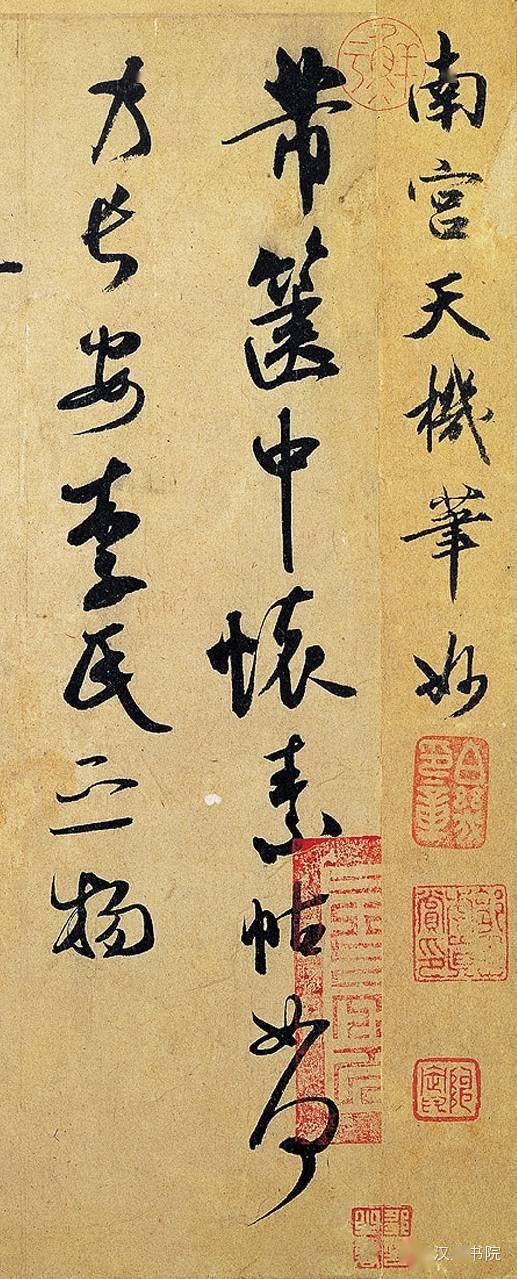 南宮天機筆妙
芾篋中懷素帖如何
乃長安李氏之物
汉 书院